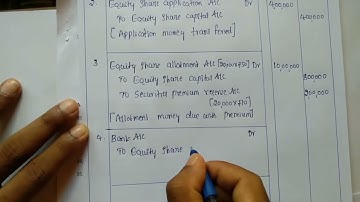 2. Equity share application A/c Dr 400,000
To Equity share capital A/c 400,000
[Application money transferred]
3 Equity share allotment A/c [20,000x₹50] Dr 10,00,000
To Equity share capital A/c 800000
To Securities premium reserve A/c 200,000
[20,000x₹10]
[Allotment money due with premium]
4. Bank A/c Dr
To Equity share